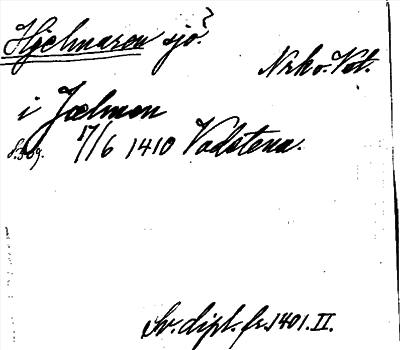 Hjelmaren sjö?
Nrke. Vst.
i Jælmen
s. 309. 17/6 1410 Vadstena.
Sv. dipl. fr. 1401. II.